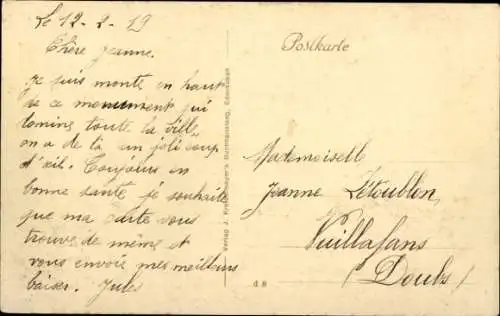 Le 12-2-19
Chère Jeanne.
Je suis monté en haut
de ce monument qui
domine toute la ville,
on a de là un joli coup
d'œil. Toujours en
bonne santé je souhaite
que ma carte vous
trouve de même et
vous envoie mes meilleurs
baiser. Jules
Postkarte
Mademoiselle
Jeanne Létoublon
Vuillafans
(Doubs)
Verlag J.
48